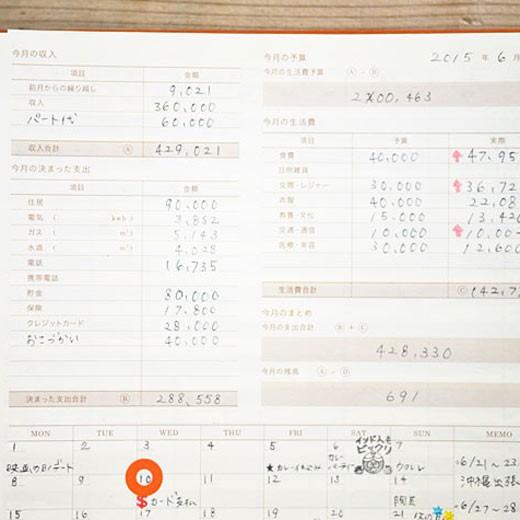 今月の収入
項目 金額
前月からの繰り越し 9,021
収入 360,000
パート代 60,000
収入合計 Ⓐ 429,021
今月の決まった支出
項目 金額
住居 90,000
電気 ( kwh ) 3,852
ガス ( m³ ) 5,143
水道 ( m³ ) 4,028
電話 16,735
携帯電話
貯金 80,000
保険 17,800
クレジットカード 28,000
おこづかい 40,000
決まった支出合計 Ⓑ 288,558
今月の予算 2015 年 6 月
今月の生活費予算 Ⓐ - Ⓑ
今月の生活費
項目 予算 実際
食費 40,000 47,95
日用雑貨
交際・レジャー 30,000 36,72
衣服 40,000 22,08
教養・文化 15,000 13,420
交通・通信 10,000 10,00
医療・美容 30,000 12,600
生活費合計 Ⓒ 142,7
今月のまとめ
今月の支出合計 Ⓑ + Ⓒ
428,330
今月の残高 Ⓐ - Ⓓ
691
MON TUE WED THU FRI SAT SUN MEMO
1 2 3 4 5 6 7
インド人もビックリ
カレーパーティ
ウクレレ
6/21～23
沖縄出張
8 9 10 11 12 13 14
$カード支払
陶芸
6/27～28
15 16 17 18 19 20 21